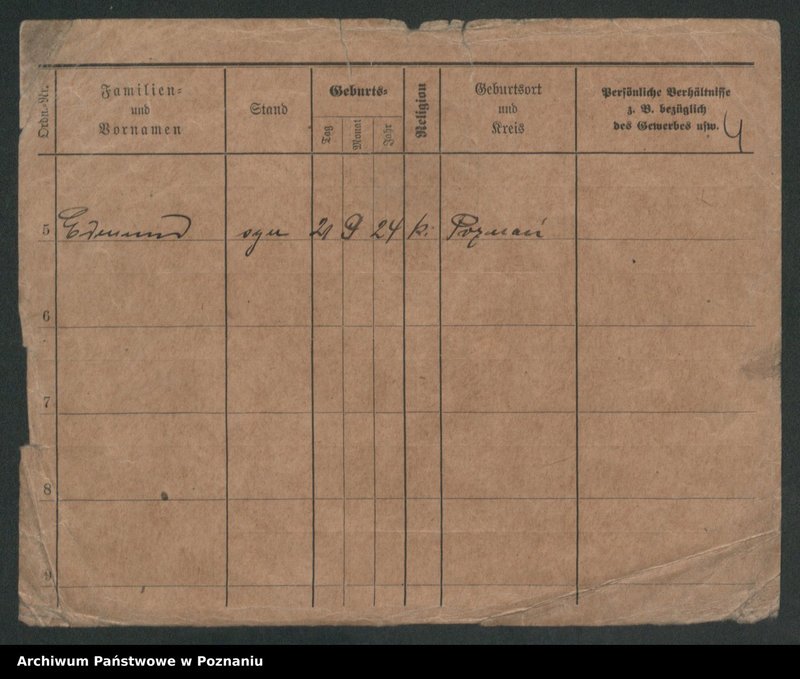 Ordn.-Nr.
Familien-
und
Vornamen
Stand
Geburts-
Tag
Monat
Jahr
Religion
Geburtsort
und
Kreis
Persönliche Verhältnisse
z. B. bezüglich
des Gewerbes usw.
4
5 Edmund syn 21 9 24 k. Poznań
6
7
8
9
Archiwum Państwowe w Poznaniu